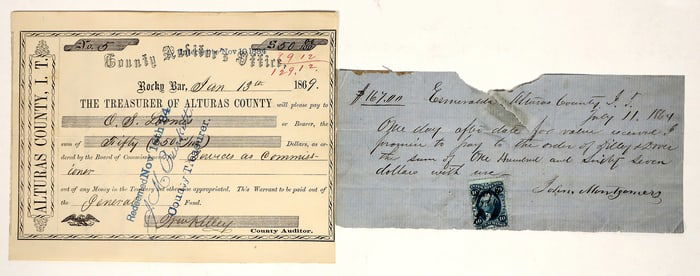 ALTURAS COUNTY, I. T.
No. 5
$50.00
County Auditor's Office,
Nov 10 1884
69 12
129.12
Rocky Bar, Jan 13th 1869.
THE TREASURER OF ALTURAS COUNTY will please pay to
O. S. or Bearer, the
sum of Fifty (50) Dollars, as or-
dered by the Board of Commissioners Services as Commiss-
ioner
out of any Money in the Treasury appropriated. This Warrant to be paid out
of the General Fund.
County Auditor.
Redeemed Nov 10th 84
County Treasurer.
$167.00 Esmeralda Alturas County I. T.
July 11, 1864
One day after date for value received I
promise to pay to the order of
the sum of One Hundred and Sixty Seven
dollars with use
John Montgomery